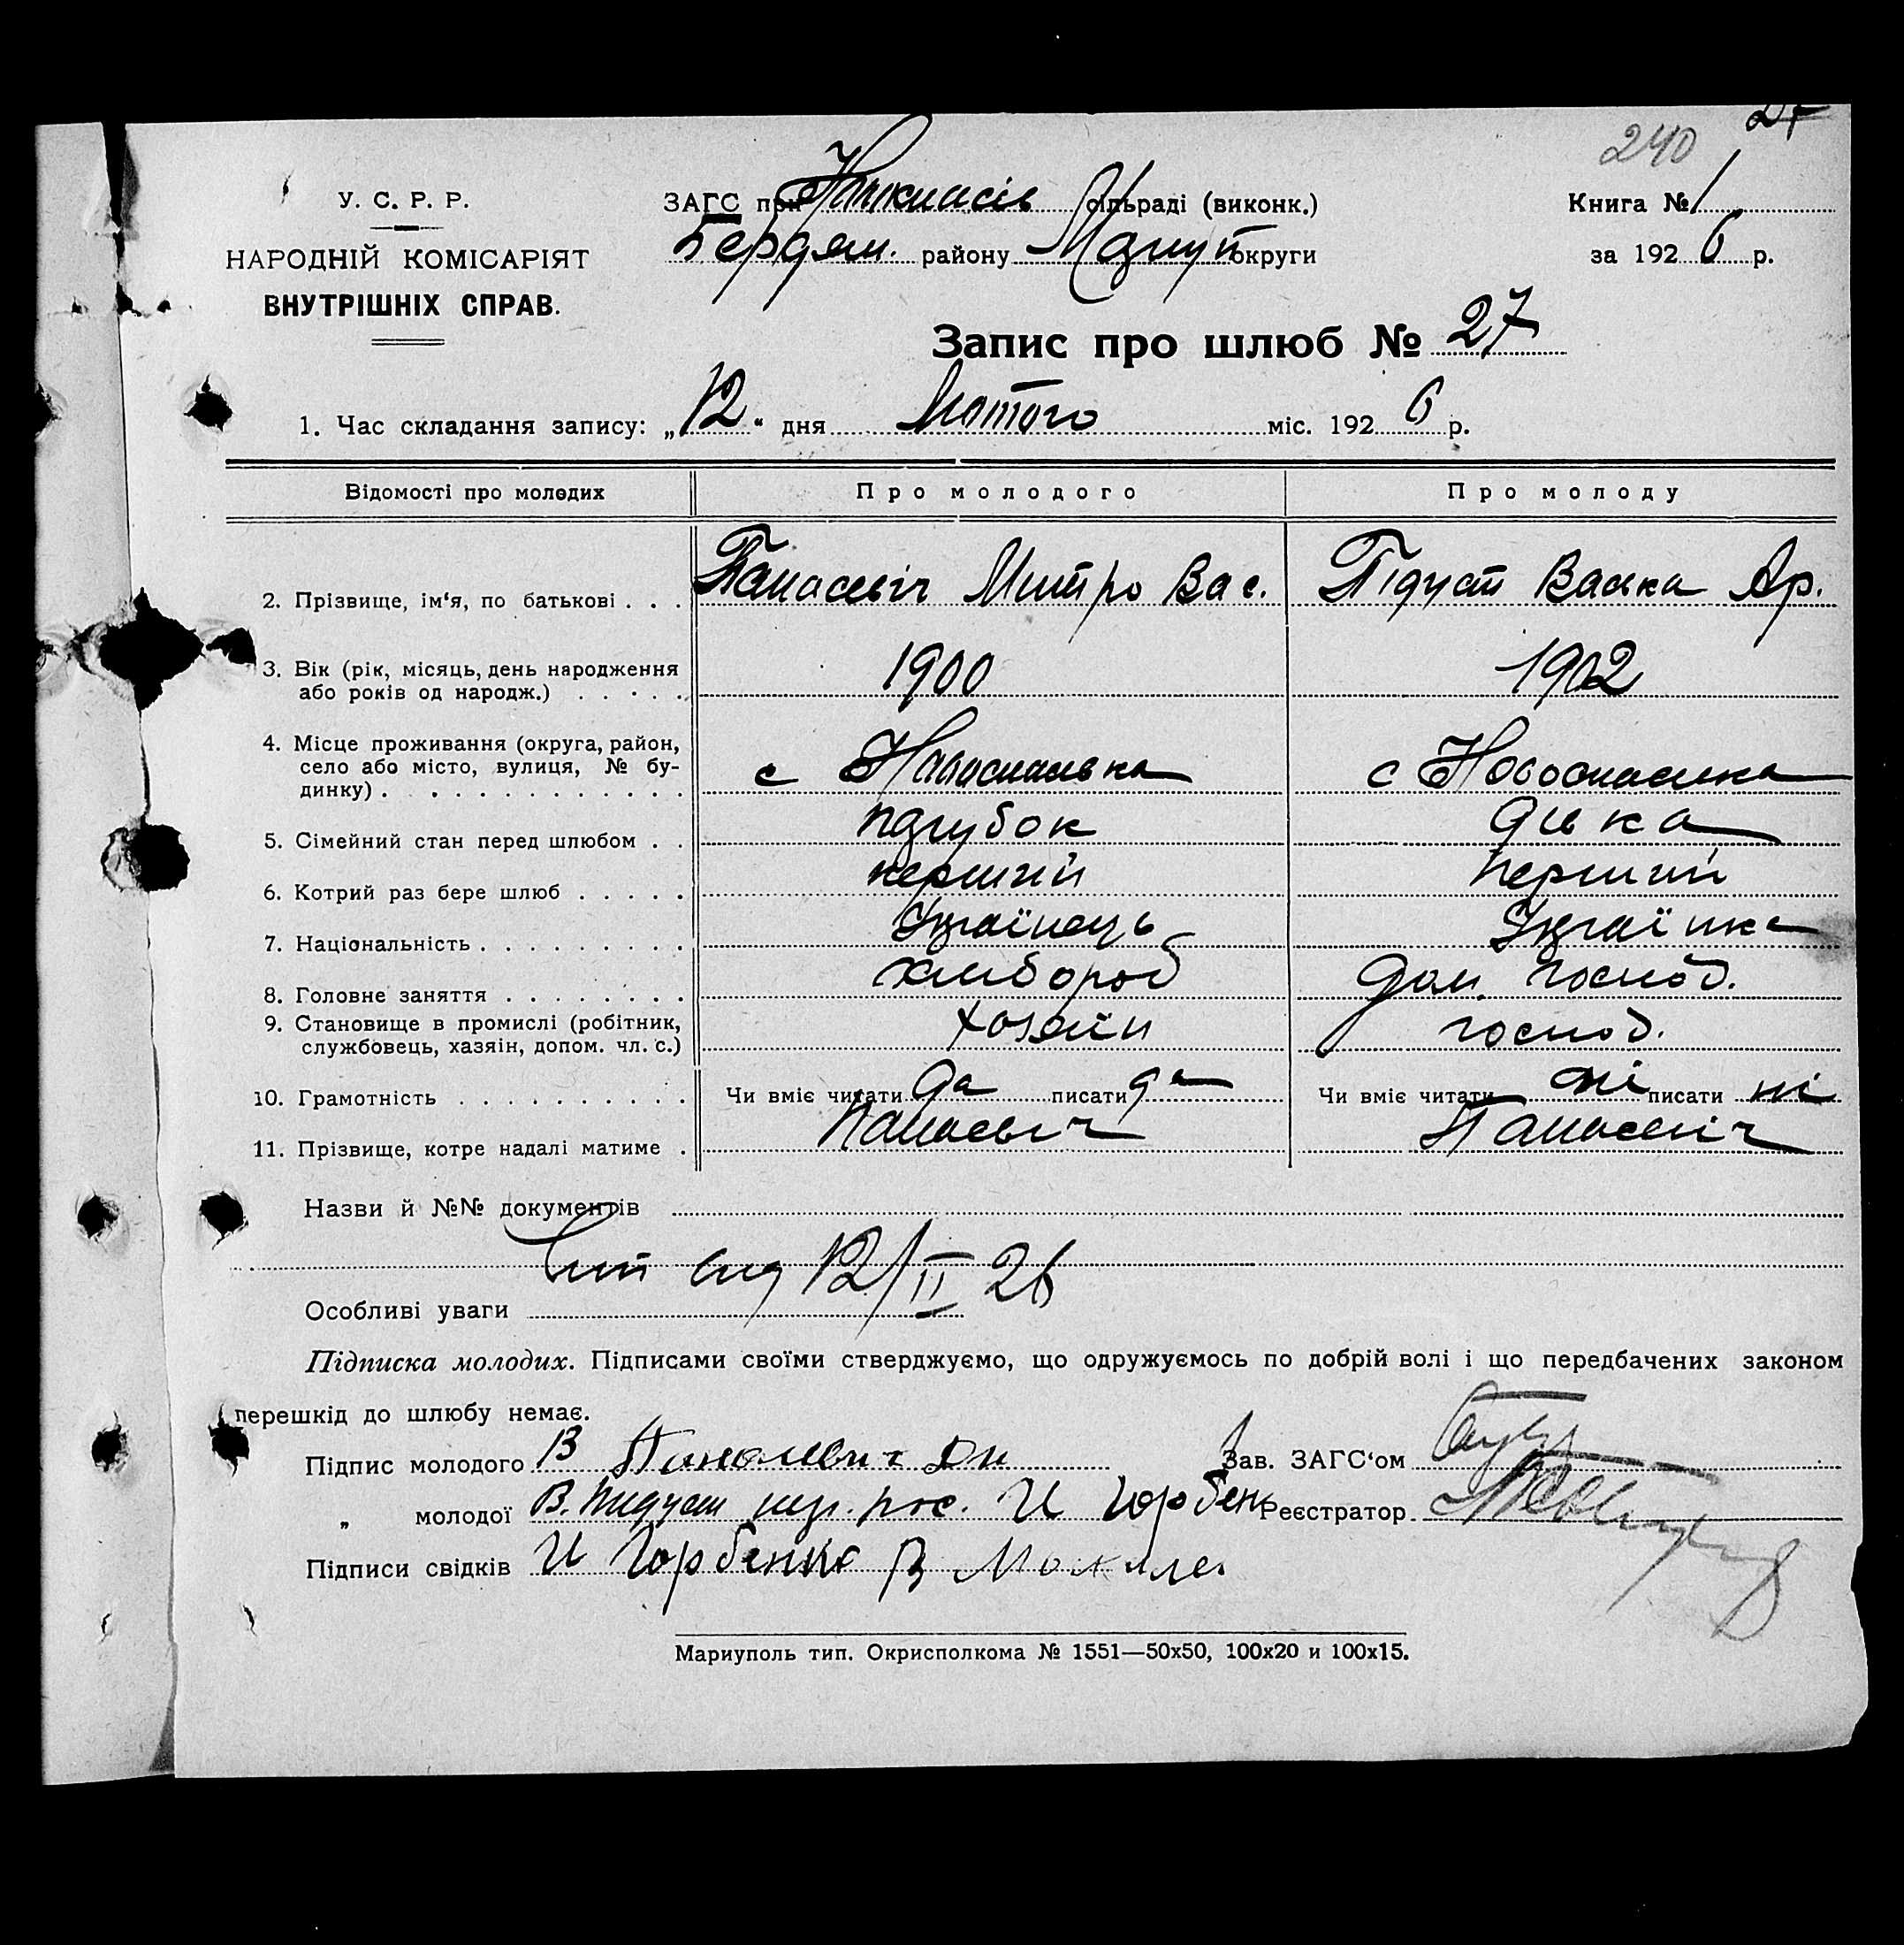 240 27
У. С. Р. Р.
НАРОДНІЙ КОМІСАРІЯТ
ВНУТРІШНІХ СПРАВ.
ЗАГС при сільраді (виконк.)
Бердян. району Маріуп округи
Книга № 1
за 1926 р.
Запис про шлюб № 27
1. Час складання запису: „12“ дня Лютого міс. 1926 р.
Відомості про молодих Про молодого Про молоду
2. Прізвище, ім‘я, по батькові . . . Панасевіч Митро Вас. Підуст Васька Ар.
3. Вік (рік, місяць, день народження
або років од народж.) . . . . . 1900 1902
4. Місце проживання (округа, район,
село або місто, вулиця, № бу-
динку) . . . . . . . . . . . . с Новоспаська с Новоспаська
5. Сімейний стан перед шлюбом . . парубок дівка
6. Котрий раз бере шлюб . . . . . перший перший
7. Національність . . . . . . . . . Українець Українка
8. Головне заняття . . . . . . . . хлібороб дом. господ.
9. Становище в промислі (робітник,
службовець, хазяін, допом. чл. с.) хозяїн господ.
10. Грамотність . . . . . . . . . . Чи вміє читати да писати да Чи вміє читати ні писати ні
11. Прізвище, котре надалі матиме . Панасевіч Панасевіч
Назви й №№ документів
12/II 26
Особливі уваги
Підписка молодих. Підписами своїми стверджуємо, що одружуємось по добрій волі і що передбачених законом
перешкід до шлюбу немає.
Підпис молодого В Панасевич Дм Зав. ЗАГС‘ом
„ молодої В. Пидуст нгр. рос. И Горбенко Реєстратор
Підписи свідків И Горбенко В
Мариуполь тип. Окрисполкома № 1551—50х50, 100х20 и 100х15.